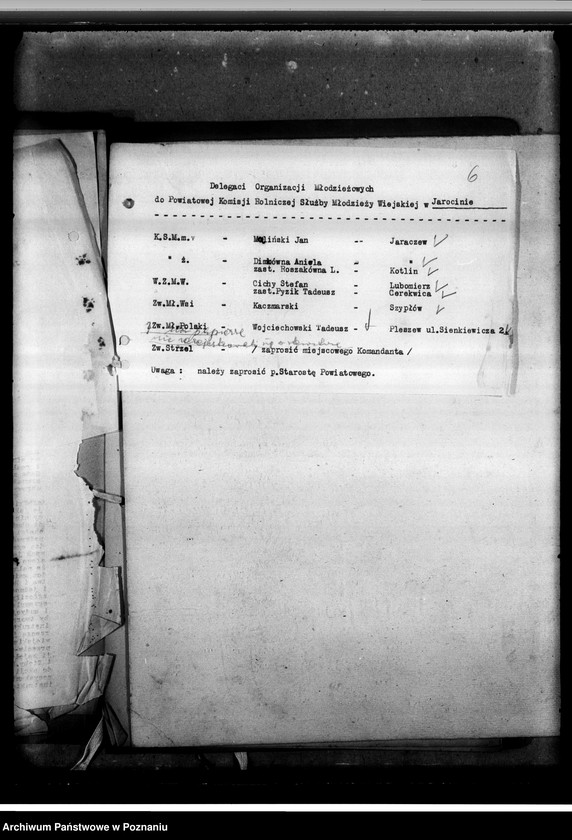 6
Delegaci Organizacji Młodzieżowych
do Powiatowej Komisji Rolniczej Służby Młodzieży Wiejskiej w Jarocinie
K.S.M.m. - Maliński Jan -- Jaraczew
" ż. - Dimkówna Aniela - "
zast. Roszakówna L. - Kotlin
W.Z.M.W. - Cichy Stefan - Lubomierz
zast. Pyzik Tadeusz - Cerekwica
Zw.Mł.Wsi - Kaczmarski - Szypłów
Zw.Mł.Polski - Wojciechowski Tadeusz - Pleszew ul.Sienkiewicza 2
na papierze
nie
Zw.Strzel - / zaprosić miejscowego Komandanta /
Uwaga : należy zaprosić p.Starostę Powiatowego.
Archiwum Państwowe w Poznaniu